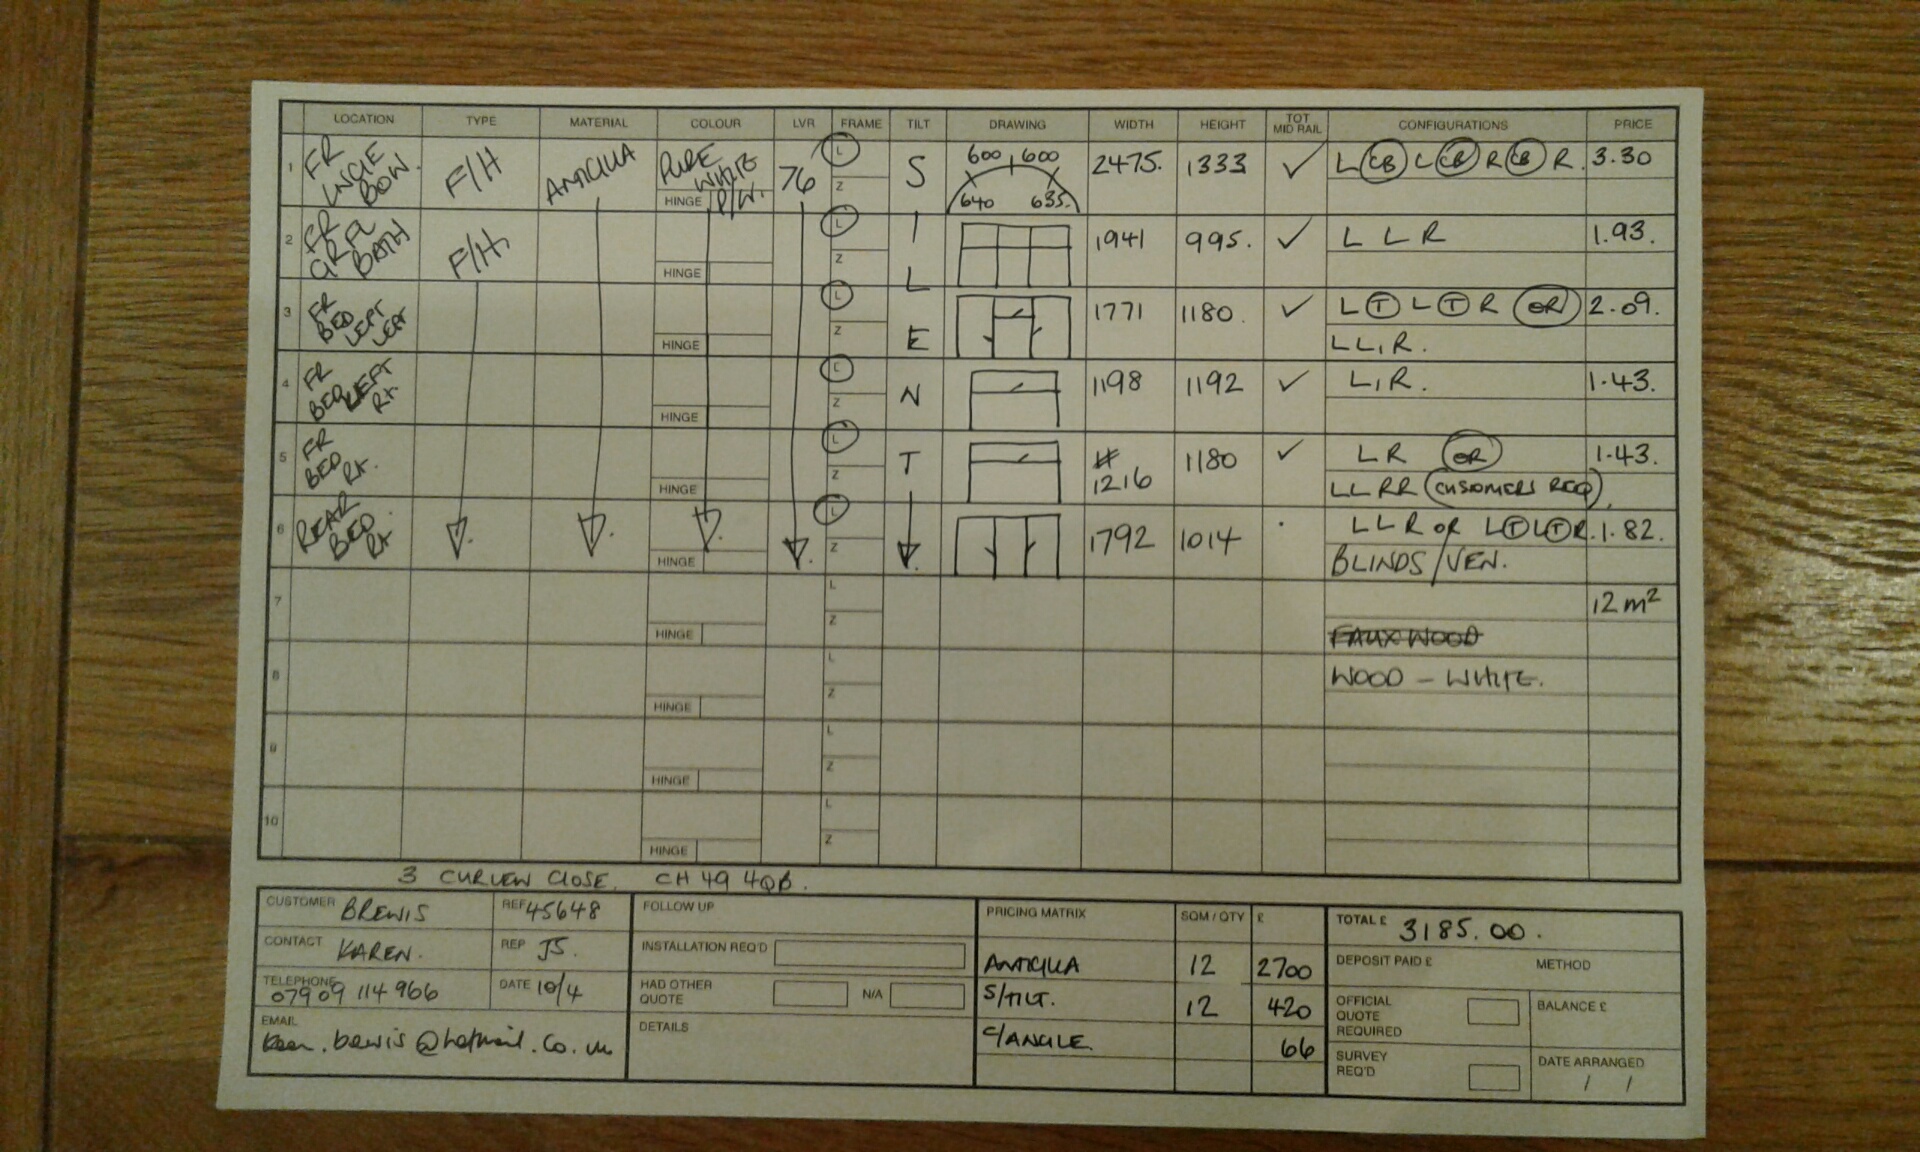 LOCATION TYPE MATERIAL COLOUR LVR FRAME TILT DRAWING WIDTH HEIGHT TOT MID RAIL CONFIGURATIONS PRICE
1 FR BOW. F/H ANTIGUA PURE WHITE P/W. HINGE 76 L Z S 600 600 640 635. 2475. 1333 ✓ L CB L CB R CB R. 3.30
2 FR GR FL BATH F/H. HINGE L Z I 1941 995. ✓ L L R 1.93.
3 FR BED LEFT LEFT HINGE L Z L E 1771 1180. ✓ L T L T R OR 2.09.
LL,R.
4 FR BED LEFT RT. HINGE L Z N 1198 1192 ✓ L,R. 1.43.
5 FR BED RT. HINGE L Z T 1216 1180 ✓ L R OR 1.43.
LL RR (CUSTOMERS REQ).
6 REAR BED. RT HINGE L Z 1792 1014 L L R OR L T L T R. 1.82.
BLINDS/VEN.
7 HINGE L Z 12 m²
FAUXWOOD
8 HINGE L Z WOOD - WHITE.
9 HINGE L Z
10 HINGE L Z
3 CURLEW CLOSE. CH49 4QB.
CUSTOMER BREWIS REF 45648
CONTACT KAREN. REP JS.
TELEPHONE 07909 114 966 DATE 10/4
EMAIL
@hotmail.co.uk
FOLLOW UP
INSTALLATION REQ'D
HAD OTHER QUOTE N/A
DETAILS
PRICING MATRIX SQM / QTY £
ANTIGUA 12 2700
S/TILT. 12 420
C/ANGLE. 66
TOTAL £ 3185.00.
DEPOSIT PAID £ METHOD
OFFICIAL QUOTE REQUIRED BALANCE £
SURVEY REQ'D DATE ARRANGED
/ /